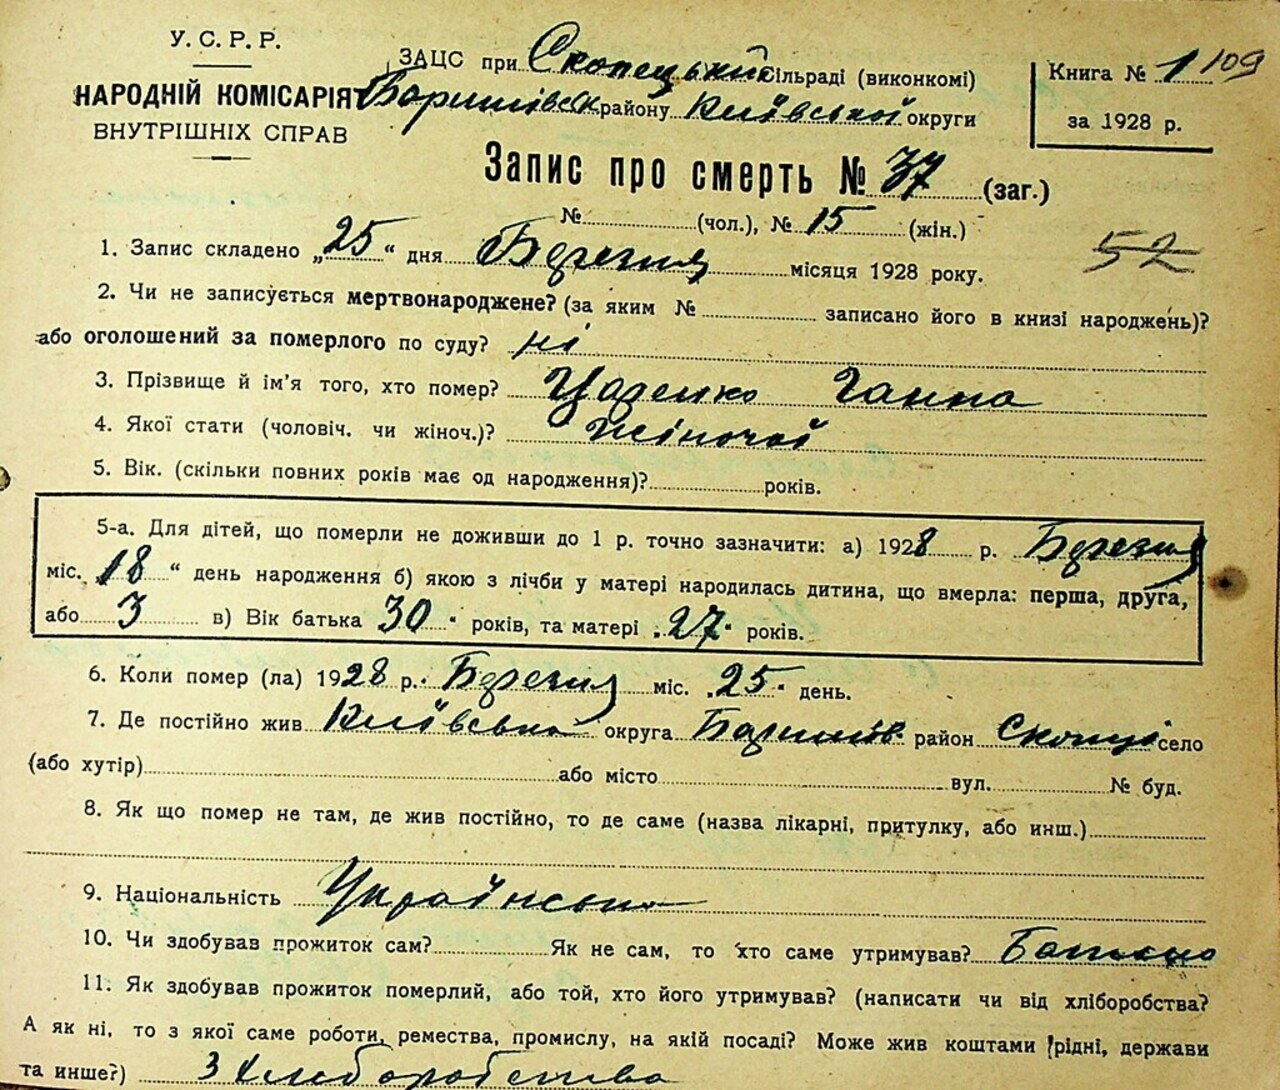 У. С. Р. Р.
НАРОДНІЙ КОМІСАРІЯТ
ВНУТРІШНІХ СПРАВ
ЗАЦС при Скопецький сільраді (виконкомі)
Баришівськ району Київської округи
Книга № 1 109
за 1928 р.
Запис про смерть № 37 (заг.)
№ (чол.), № 15 (жін.)
52
1. Запис складено „25“ дня Березня місяця 1928 року.
2. Чи не записується мертвонароджене? (за яким № записано його в книзі народжень)?
або оголошений за померлого по суду? ні
3. Прізвище й ім'я того, хто помер? Царенко Ганна
4. Якої стати (чоловіч. чи жіноч.)? Жіночої
5. Вік. (скільки повних років має од народження)? років.
5-а. Для дітей, що померли не доживши до 1 р. точно зазначити: а) 1928 р. Березня
міс. „18“ день народження б) якою з лічби у матері народилась дитина, що вмерла: перша, друга,
або 3 в) Вік батька 30 років, та матері „27“ років.
6. Коли помер (ла) 1928 р. Березня міс. „25“ день.
7. Де постійно жив Київська округа Баришів. район Скопці село
(або хутір) або місто вул. № буд.
8. Як що помер не там, де жив постійно, то де саме (назва лікарні, притулку, або инш.)
9. Національність Українська
10. Чи здобував прожиток сам? Як не сам, то хто саме утримував? Батько
11. Як здобував прожиток померлий, або той, хто його утримував? (написати чи від хліборобства?
А як ні, то з якої саме роботи, ремества, промислу, на якій посаді? Може жив коштами рідні, держави
та инше?) З Хліборобства